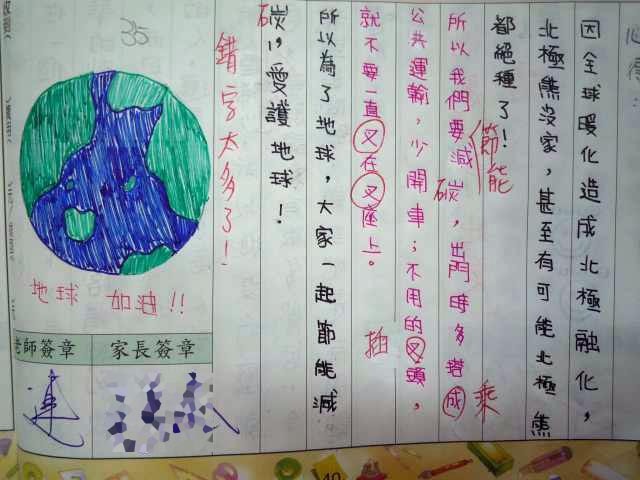 心得：
因全球暖化造成北極融化，
北極熊沒家，甚至有可能北極熊
都絕種了！
所以我們要減碳，出門時多搭成
節能
乘
公共運輸，少開車；不用的叉頭，
就不要一直叉在叉座上。
插
所以為了地球，大家一起節能減
碳，愛護地球！
錯字太多了！
35
地球 加油!!
老師簽章 家長簽章
40